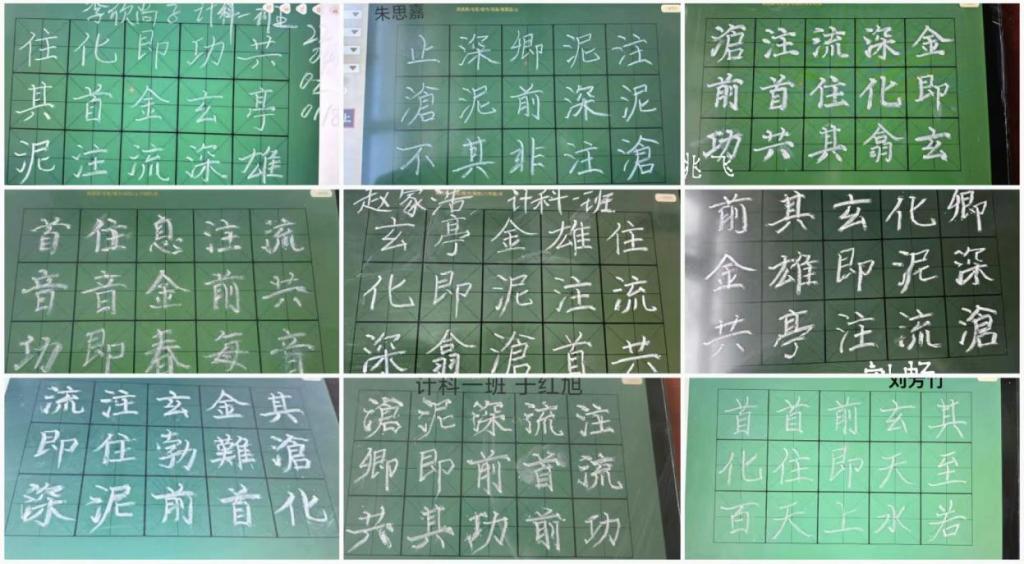 计科一班
住化即功共
其首金玄亭
泥注流深雄
朱思嘉
止深卿泥注
滄泥前深泥
不其非注滄
滄注流深金
前首住化即
功共其翕玄
兆飞
首住息注流
音音金前共
功即春每音
赵家浩 计科一班
玄亭金雄住
化即泥注流
深翕滄首共
前其玄化卿
金雄即泥深
共亭注流滄
刘畅
流注玄金其
即住勃難滄
深泥前首化
计科一班 于红旭
滄泥深流注
卿即前首流
共其功前功
刘芳竹
首首前玄其
化住即天至
百天上水若